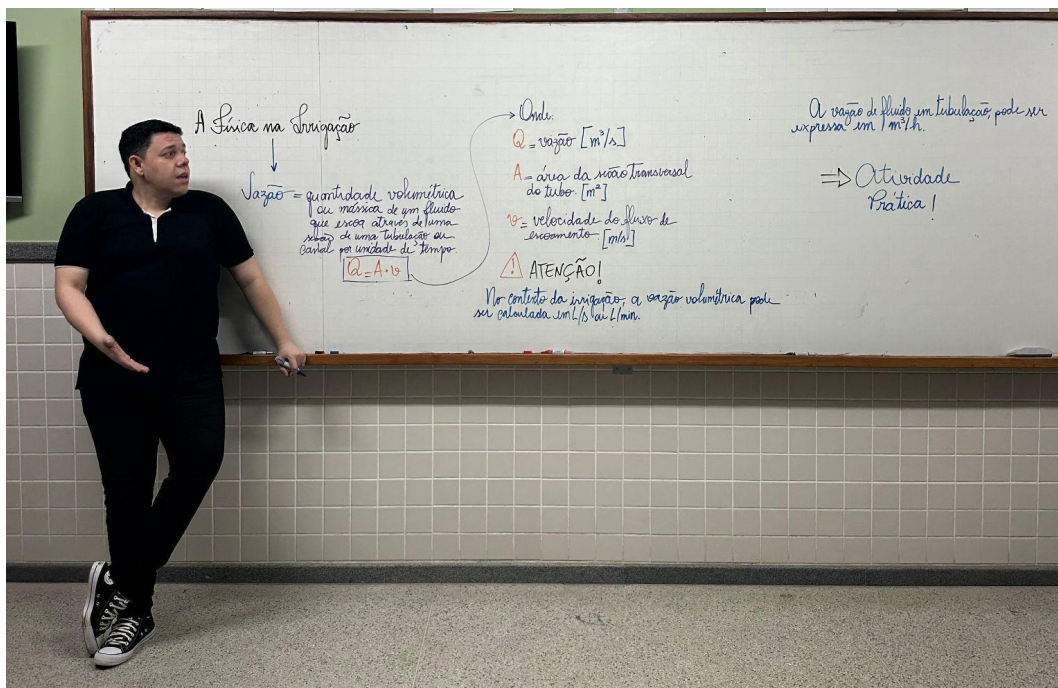 A Física na Irrigação
Vazão = quantidade volumétrica
ou mássica de um fluido
que escoa através de uma
seção de uma tubulação ou
canal por unidade de tempo.
Q = A · v
Onde:
Q = vazão [m³/s]
A = área da seção transversal
do tubo. [m²]
v = velocidade do fluxo de
escoamento. [m/s]
! ATENÇÃO!
No contexto da irrigação, a vazão volumétrica pode
ser calculada em L/s ou L/min.
A vazão de fluido em tubulação, pode ser
expressa em m³/h.
⇒ Atividade
Prática!